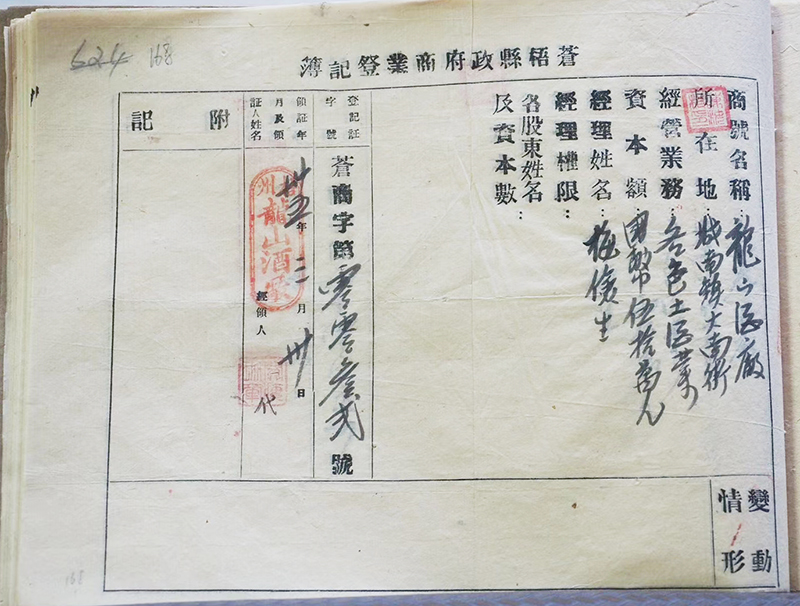 624 168
蒼梧縣政府商業登記簿
商號名稱：龍山酒廠
所在地：城南鎮大南街
經營業務：各色土酒業
資本額：國幣伍拾萬元
經理姓名：梅俊生
經理權限：
各股東姓名：
及資本數
登記証字號 蒼商字第零零叁弍號
領証年月及領証人姓名 卅五年二月卅日
經領人 代
州龍山酒
附記
變動情形
168